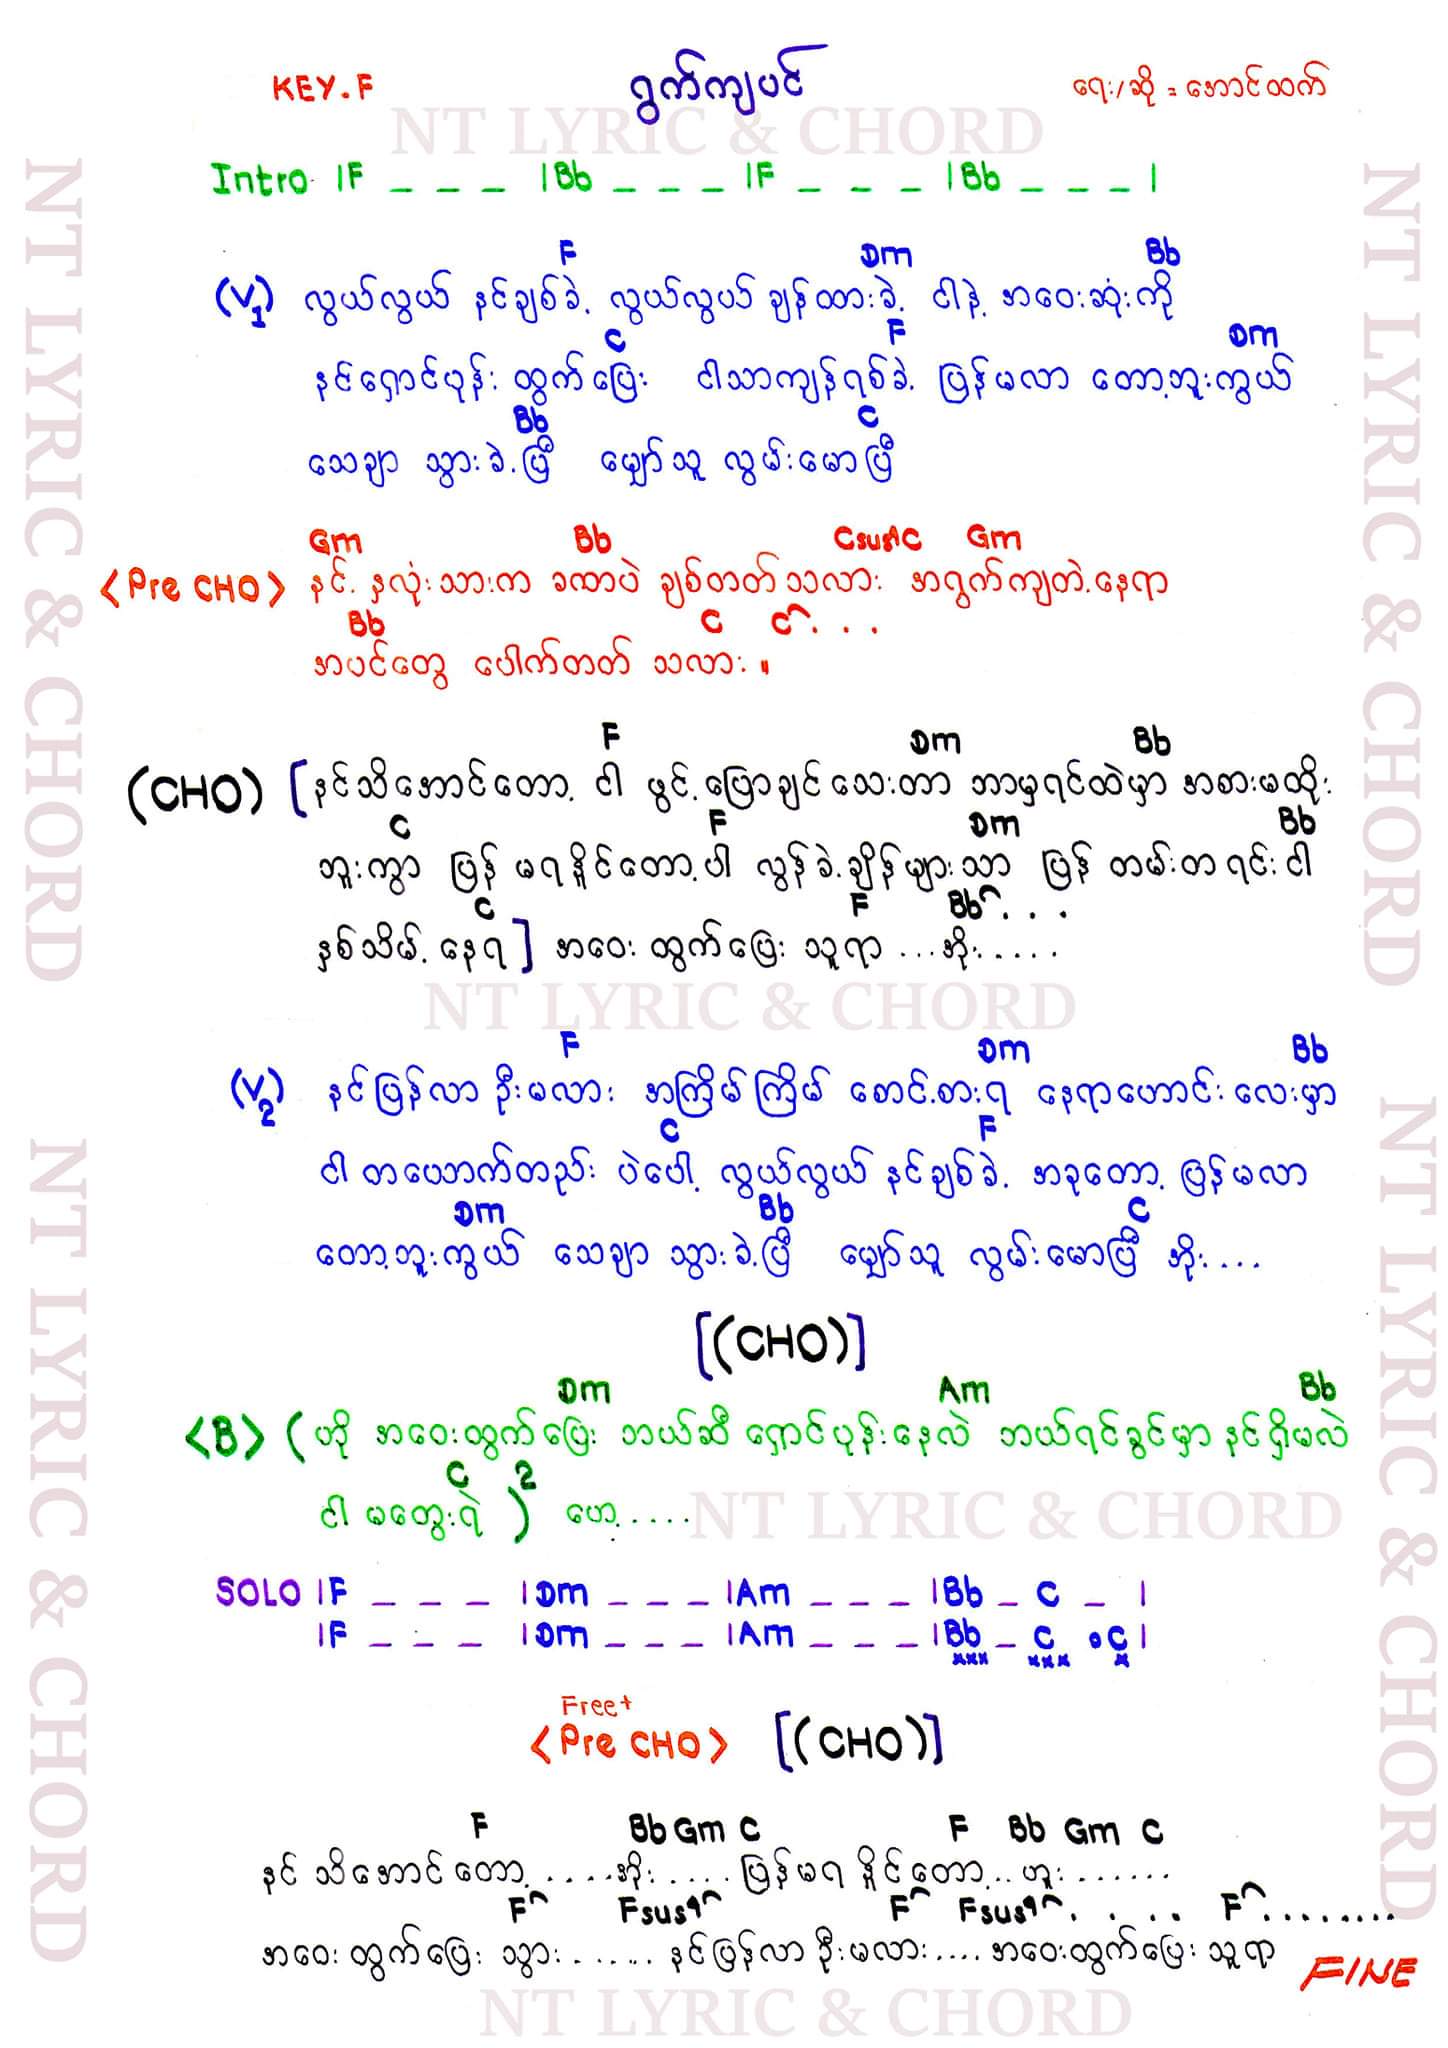 KEY.F ရွက်ကျပင် ရေး/ဆို = အောင်ထက်
NT LYRIC & CHORD
Intro |F _ _ _ |Bb _ _ _ |F _ _ _ |Bb _ _ _ |
F Dm Bb
(V1) လွယ်လွယ် နင်ချစ်ခဲ့ လွယ်လွယ် ချန်ထားခဲ့ ငါနဲ့ အဝေးဆုံးကို
C F Dm
နင်ရှောင်ပုန်း ထွက်ပြေး ငါသာကျန်ရစ်ခဲ့ ပြန်မလာ တော့ဘူးကွယ်
Bb C
သေချာ သွားခဲ့ပြီ မျှော်သူ လွမ်းမောပြီ
Gm Bb Csus4C Gm
<Pre CHO> နင့် နှလုံးသားက ခဏပဲ ချစ်တတ်သလား အရွက်ကျတဲ့နေရာ
Bb C C⌒...
အပင်တွေ ပေါက်တတ် သလား ။
F Dm Bb
(CHO) [နင်သိအောင်တော့ ငါ ဖွင့်ပြောချင်သေးတာ ဘာမှရင်ထဲမှာ အစားမထိုး
C F Dm Bb
ဘူးကွာ ပြန် မရနိုင်တော့ပါ လွန်ခဲ့ချိန်များသာ ပြန် တမ်းတ ရင်း ငါ
C F Bb⌒...
နှစ်သိမ့် နေရ] အဝေး ထွက်ပြေး သူရာ ...အိုး.....
NT LYRIC & CHORD
F Dm Bb
(V2) နင်ပြန်လာ ဦးမလား အကြိမ်ကြိမ် စောင့်စားရ နေရာဟောင်း လေးမှာ
C F
ငါ တယောက်တည်း ပဲပေါ့ လွယ်လွယ် နင်ချစ်ခဲ့ အခုတော့ ပြန်မလာ
Dm Bb C
တော့ဘူးကွယ် သေချာ သွားခဲ့ပြီ မျှော်သူ လွမ်းမောပြီ အိုး....
[(CHO)]
Dm Am Bb
<B> (ဟို အဝေးထွက်ပြေး ဘယ်ဆီ ရှောင်ပုန်းနေလဲ ဘယ်ရင်ခွင်မှာ နင်ရှိမလဲ
C
ငါ မတွေးရဲ )2 ဟေ့.....
NT LYRIC & CHORD
SOLO |F _ _ _ |Dm _ _ _ |Am _ _ _ |Bb _ C _ |
|F _ _ _ |Dm _ _ _ |Am _ _ _ |Bb _ C •C|
xxx xxx x
Free+
<Pre CHO> [(CHO)]
F Bb Gm C F Bb Gm C
နင် သိအောင် တော့.....အိုး.....ပြန်မရ နိုင်တော့...ဟူး.......
F⌒ Fsus4⌒ F⌒ Fsus4⌒.... F⌒........
အဝေး ထွက်ပြေး သွား...... နင်ပြန်လာ ဦးမလား.... အဝေးထွက်ပြေး သူရာ FINE
NT LYRIC & CHORD
NT LYRIC & CHORD
NT LYRIC & CHORD
NT LYRIC & CHORD
NT LYRIC & CHORD